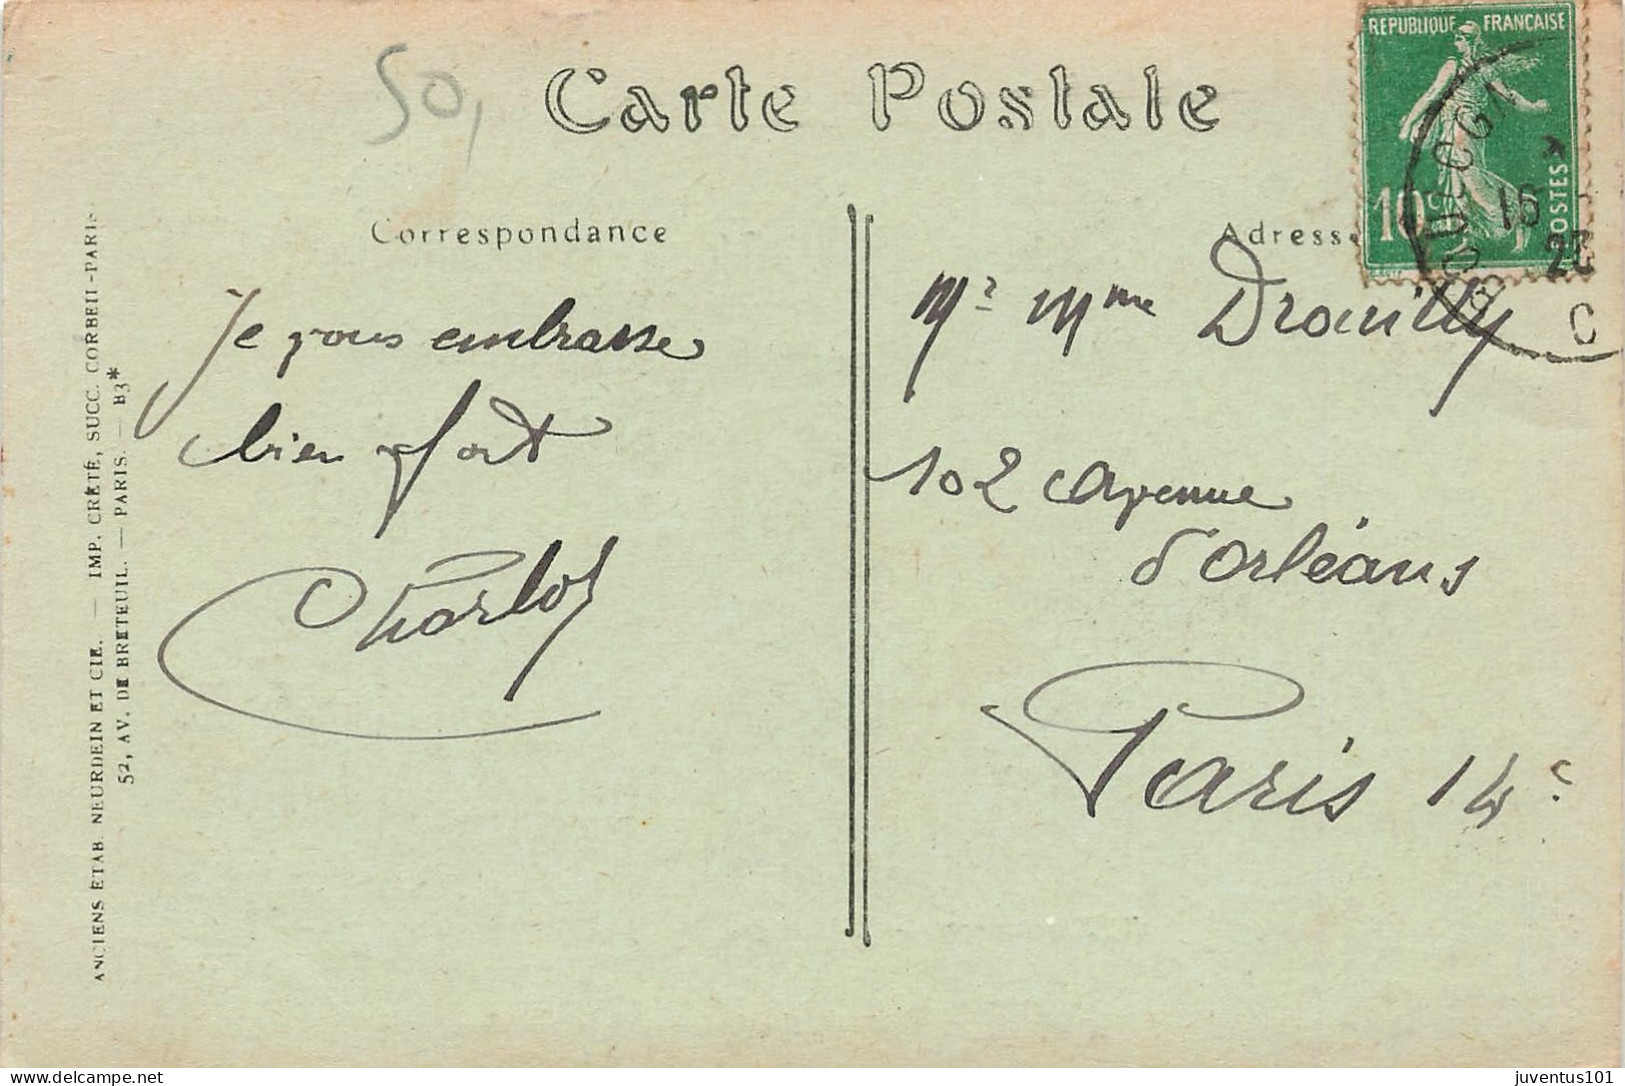 50,
Carte Postale
REPUBLIQUE FRANÇAISE
10c
POSTES
16
C
Correspondance
Je vous embrasse
bien fort
Charlot
Adress
Mr Mme Drouilly
102 Avenue
d'Orléans
Paris 14e
ANCIENS ETAB. NEURDEIN ET CIE. — IMP. CRÉTÉ, SUCC. CORBEIL-PARIS
52, AV. DE BRETEUIL. — PARIS. — B3*
delcampe.net
juventus101